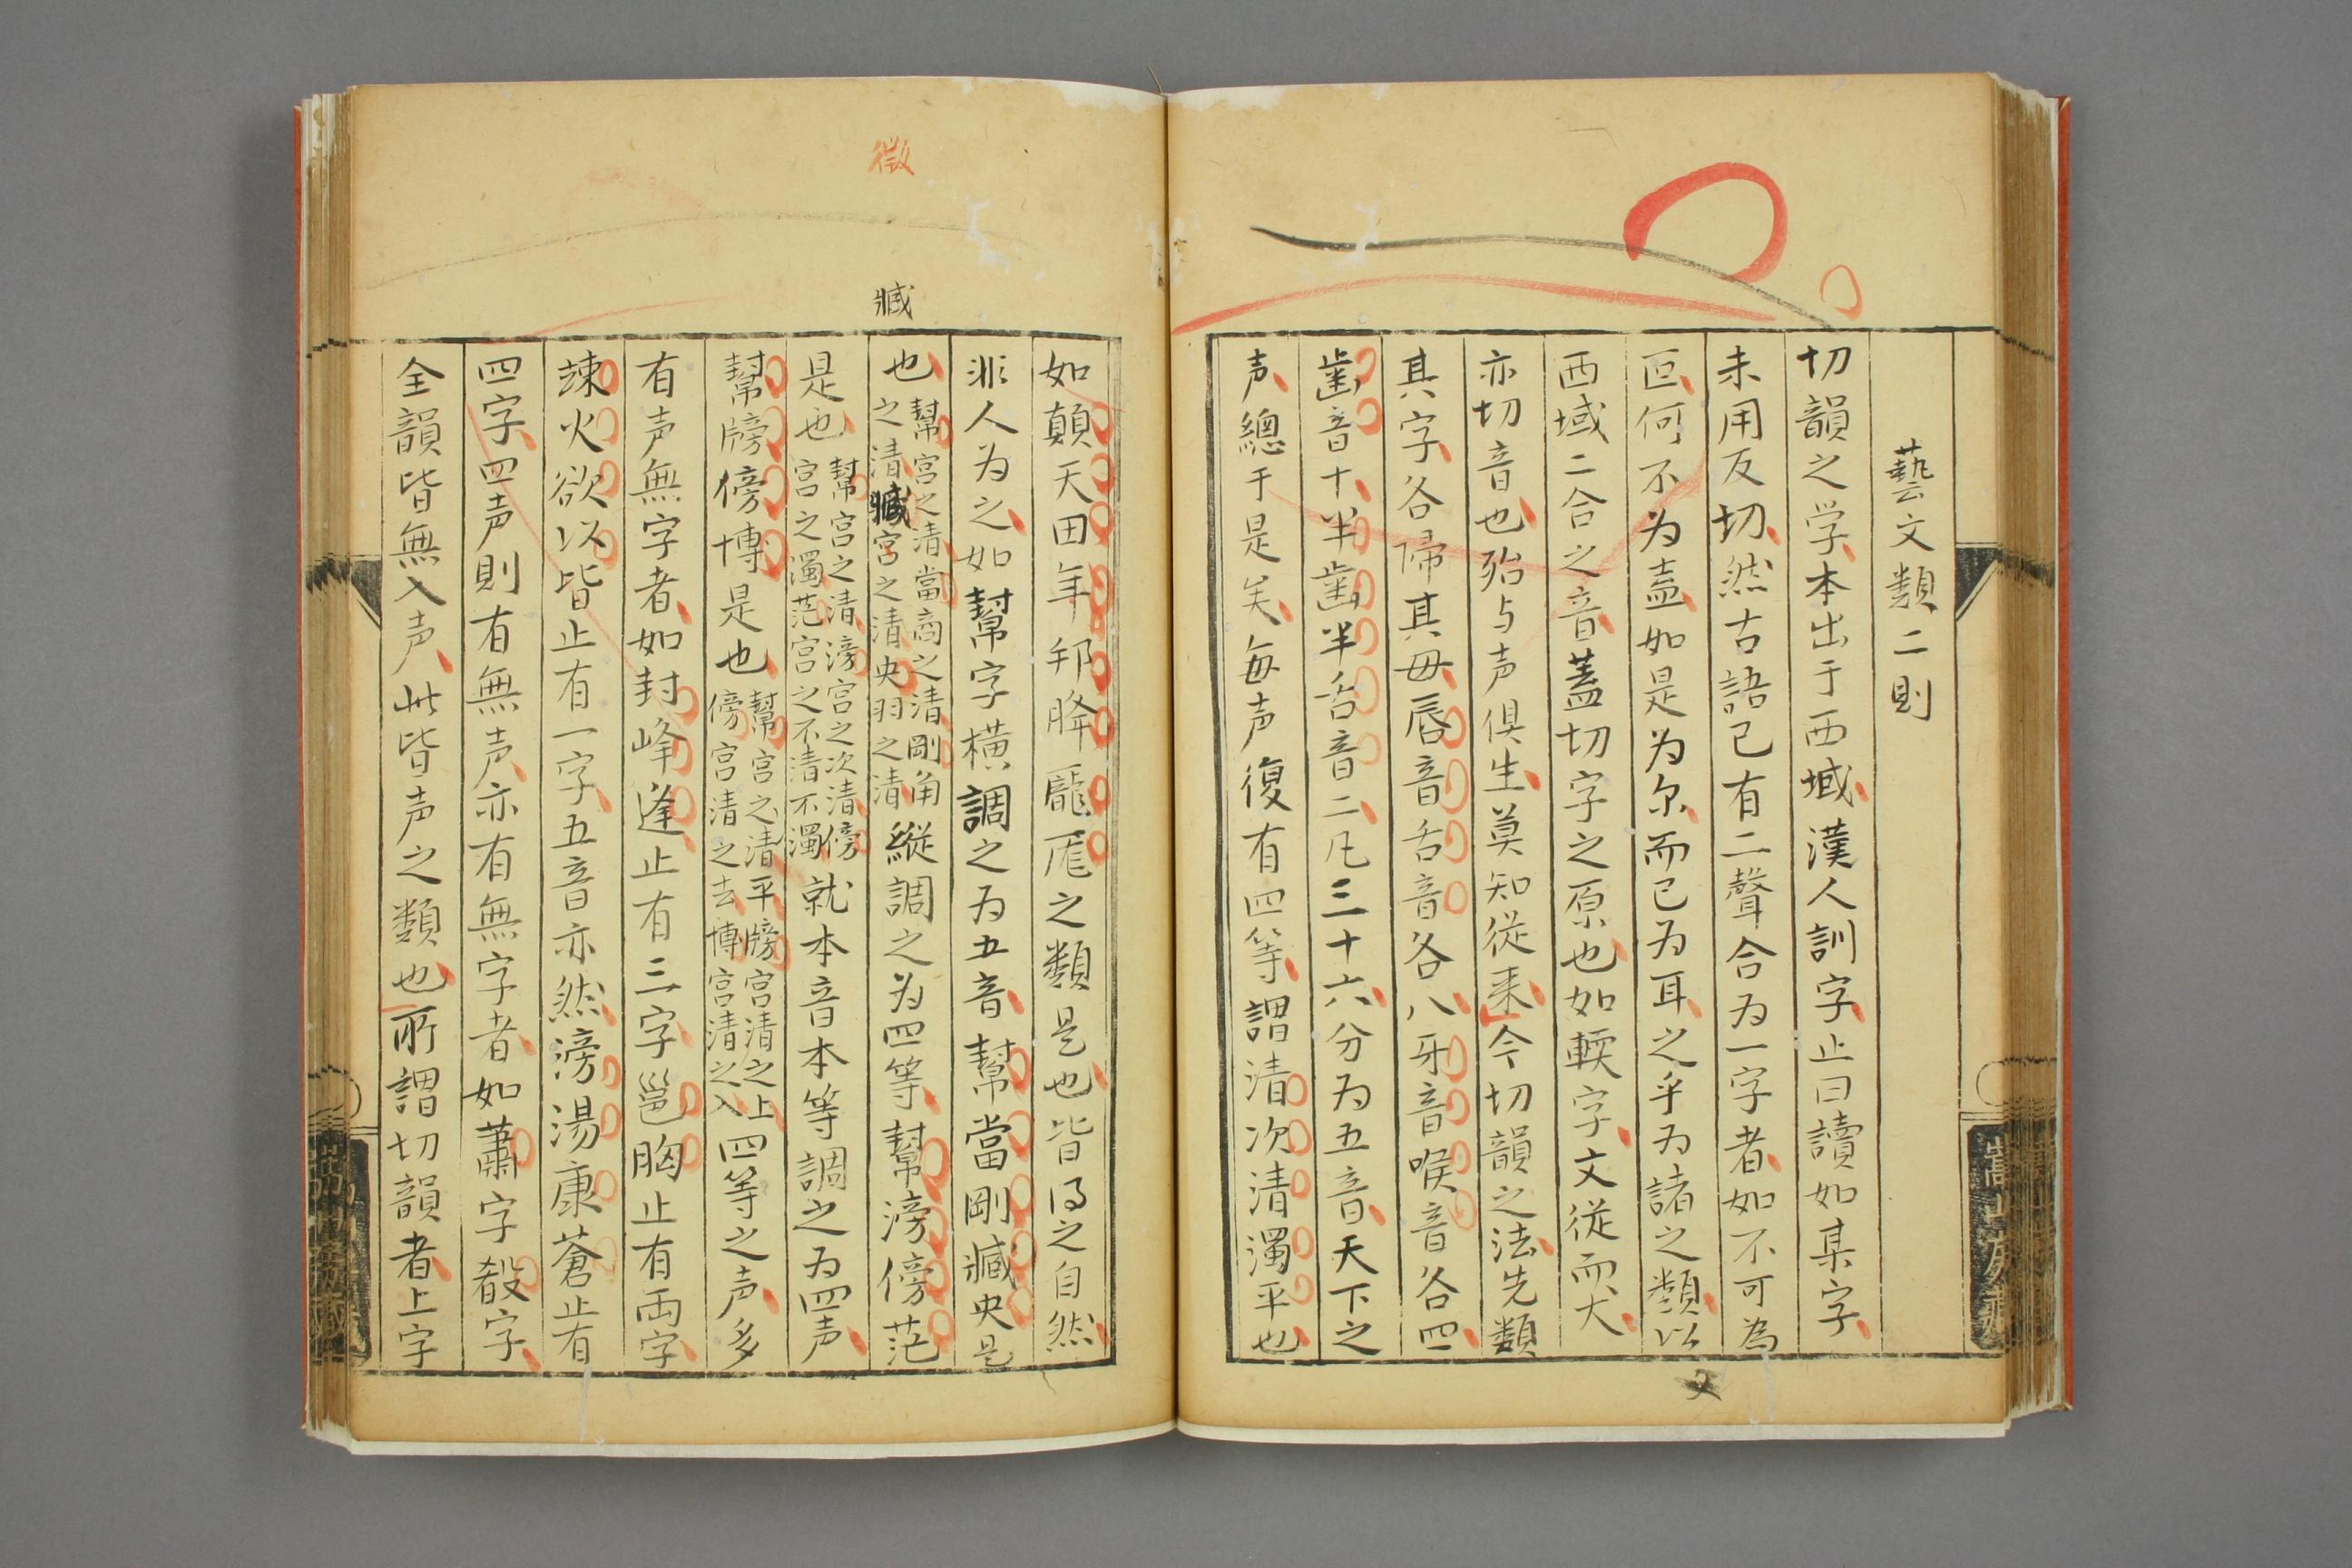 藝文類二則
切韻之学本出于西域漢人訓字止曰讀如某字
未用反切然古語已有二聲合为一字者如不可為
叵何不为盍如是为尔而已为耳之乎为諸之類以
西域二合之音蓋切字之原也如輭字文従而大
亦切音也殆与声俱生莫知従来今切韻之法先類
其字各帰其母唇音舌音各八牙音喉音各四
齒音十半齒半舌音二凡三十六分为五音天下之
声總于是矣每声復有四等謂清次清濁平也
如顛天田年邦胮龐厖之類是也皆得之自然
非人为之如幫字横調之为五音幫當剛臧央是
也幫宫之清當商之清剛角
之清臧宫之清央羽之清縦調之为四等幫滂傍茫
是也幫宫之清滂宫之次清傍
宫之濁茫宫之不清不濁就本音本等調之为四声
幫牓傍博是也幫宫之清平牓宫清之上
傍宫清之去博宫清之入四等之声多
有声無字者如封峰逢止有三字邕胸止有両字
竦火欲以皆止有一字五音亦然滂湯康蒼止有
四字四声則有無声亦有無字者如蕭字殽字
全韻皆無入声此皆声之類也所謂切韻者上字
徵
臧